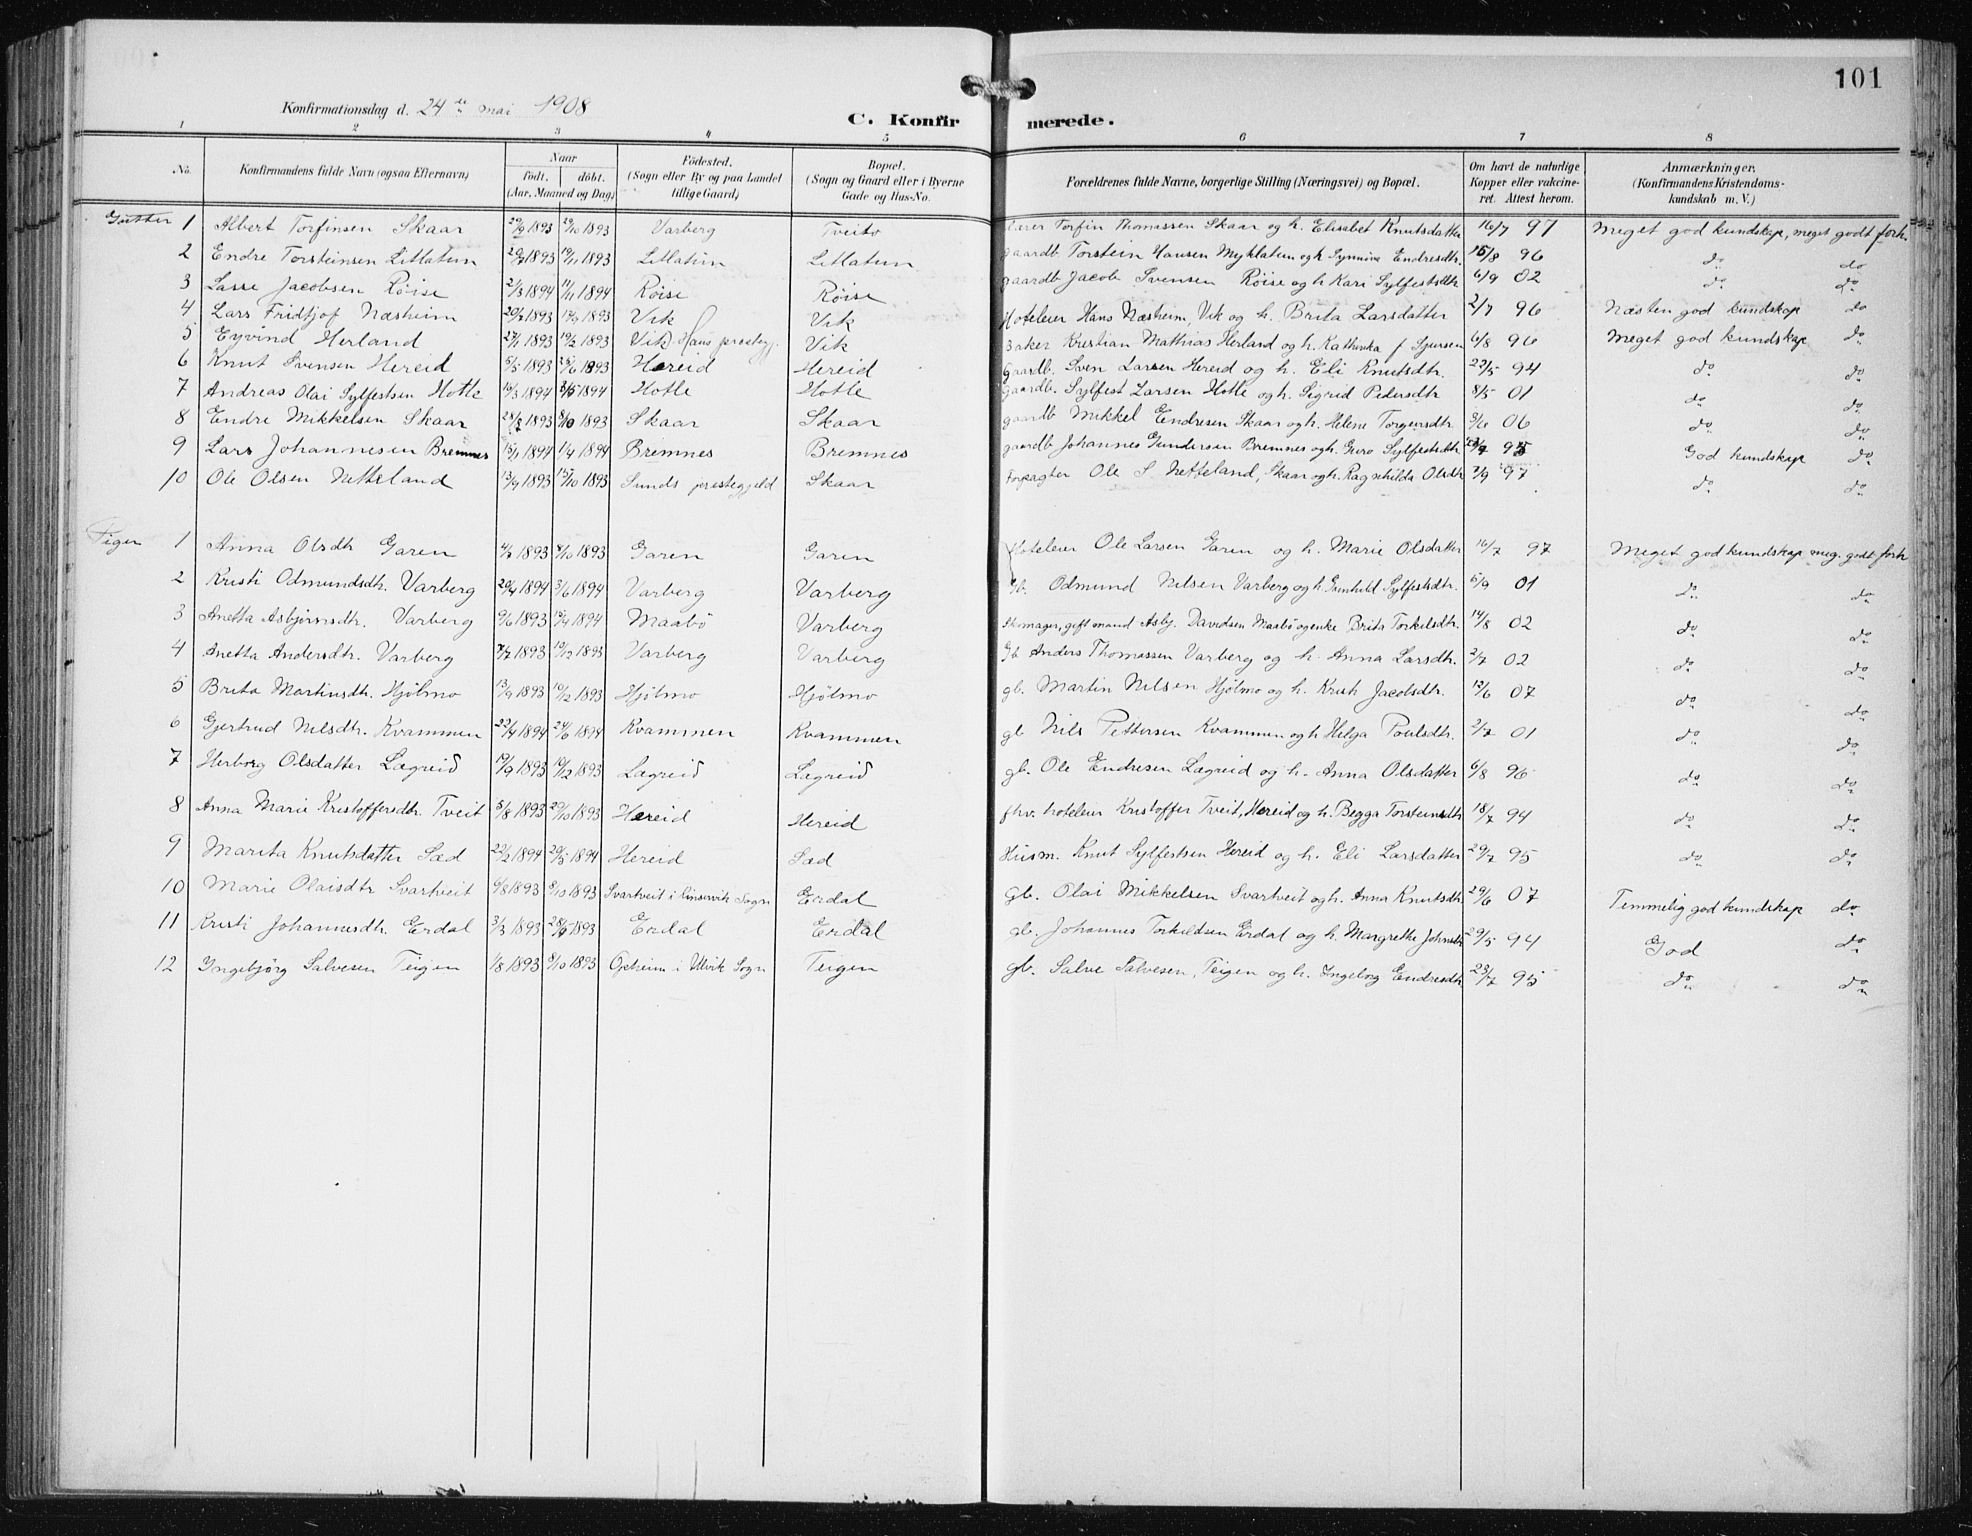 101
Konfirmationsdag d. 24de mai 1908
C. Konfirmerede.
1 2 3 4 5 6 7 8
No. Konfirmandens fulde Navn (ogsaa Efternavn) Naar født. døbt. (Aar, Maaned og Dag) Födested. (Sogn eller By og paa Landet tillige Gaard) Bopæl. (Sogn og Gaard eller i Byerne Gade og Hus-No. Forældrenes fulde Navne, borgerlige Stilling (Næringsvei) og Bopæl. Om havt de naturlige Kopper eller vakcineret. Attest herom. Anmærkninger. (Konfirmandens Kristendomskundskab m. V.)
Gutter 1 Albert Torfinsen Skaar 20/9 1893 29/10 1893 Varberg Tveito Lærer Torfin Thomassen Skaar og h. Elisabet Knutsdatter 16/7 97 Meget god kundskap, meget godt forh.
2 Endre Torsteinsen Litlatun 1893 19/11 1893 Litlatun Litlatun gaardb Torstein Hansen Myklatun og h. Synniva Endresdtr. 15/8 96 do do
3 Lasse Jacobsen Röise 2/3 1894 1894 Röise Röise gaardb Jacob Svensen Röise og h. Kari Sylfestsdtr 6/9 02 do do
4 Lars Fridtjof Næsheim 1893 1893 Vik Vik Hoteleier Hans Næsheim, Vik og h. Brita Larsdatter 2/7 96 Næsten god kundskap do
5 Eyvind Herland 27/1 1893 19/2 1893 Vik Vik Baker Kristian Mathias Herland og h. Kathinka f. Sjursen 6/8 96 Meget god kundskap do
6 Knut Svensen Hereid 5/5 1893 25/6 1893 Hereid Hereid gaardb. Sven Larsen Hereid og h. Eli Knutsdtr. 22/5 94 do do
7 Andreas Olai Sylfestsen Hotle 16/3 1894 1894 Hotle Hotle gaardb. Sylfest Larsen Hotle og h. Sigrid Pedersdtr 8/5 01 do do
8 Endre Mikkelsen Skaar 28/8 1893 8/10 1893 Skaar Skaar gaardb Mikkel Endresen Skaar og h. Helene Torgersdtr. 3/6 06 do do
9 Lars Johannesen Bremnes 15/1 1894 1/4 1894 Bremnes Bremnes gaardb Johannes Gundersen Bremnes og h. Guro Sylfestsdtr 95 God kundskap do
10 Ole Olsen Netteland 13/9 1893 15/10 1893 Sunds prestegjeld Skaar Forpagter Ole S. Netteland, Skaar og h. Ragnhilda Olsdtr 7/9 97 do do
Piger 1 Anna Olsdtr Garen 1893 1893 Garen Garen Hoteleier Ole Larsen Garen og h. Marie Olsdatter 16/7 97 Meget god kundskap meg. godt forh
2 Kristi Odmundsdtr. Varberg 20/4 1894 3/6 1894 Varberg Varberg Gb. Odmund Nilsen Varberg og h. Gunhild Sylfestsdtr. 5/9 01 do do
3 Anetta Asbjørnsdtr. Varberg 9/6 1893 1894 Maabö Varberg Skomager, gift mand Asbj. Davidsen Maabö og enke Brita Torkelsdtr. 14/8 02 do do
4 Anetta Andersdtr. Varberg 7/7 1893 10/12 1893 Varberg Varberg Gb Anders Thomassen Varberg og h. Anna Larsdtr. 2/7 02 do do
5 Brita Martinsdtr. Hjölmo 13/9 1893 10/12 1893 Hjölmo Hjölmo gb. Martin Nilsen Hjölmo og h. Kristi Jacobsdtr. 12/6 07 do do
6 Gjertrud Nilsdtr. Kvammen 22/4 1894 24/6 1894 Kvammen Kvammen gb Nils Pettersen Kvammen og h Helga Poulsdtr. 2/7 01 do do
7 Herborg Olsdatter Lægreid 19/9 1893 10/12 1893 Lægreid Lægreid gb. Ole Endresen Lægreid og h. Anna Olsdatter 6/8 96 do do
8 Anna Marie Kristoffersdtr. Tveit 5/8 1893 29/10 1893 Hereid Hereid fhv. hoteleier Kristoffer Tveit, Hereid og h. Begga Torsteinsdtr 18/7 94 do do
9 Marita Knutsdatter Sæd 22/2 1894 20/5 1894 Hereid Sæd Husm. Knut Sylfestsen Hereid og h. Eli Larsdatter 29/7 95 do do
10 Marie Olaisdtr Svartveit 6/8 1893 8/10 1893 Svartveit i Kinservik Sogn Erdal Gb. Olai Mikkelsen Svartveit og h. Anna Knutsdtr 29/6 07 Temmelig god kundskap do
11 Kristi Johannesdtr. Erdal 3/3 1893 1893 Erdal Erdal gb. Johannes Torkildsen Erdal og h. Margrethe Johnsdtr 29/5 94 God do
12 Ingebjörg Salvesen Teigen 1/8 1893 8/10 1893 Opheim i Ulvik Sogn Teigen gb. Salve Salvesen, Teigen og h. Ingeborg Endresdtr 23/7 95 do do